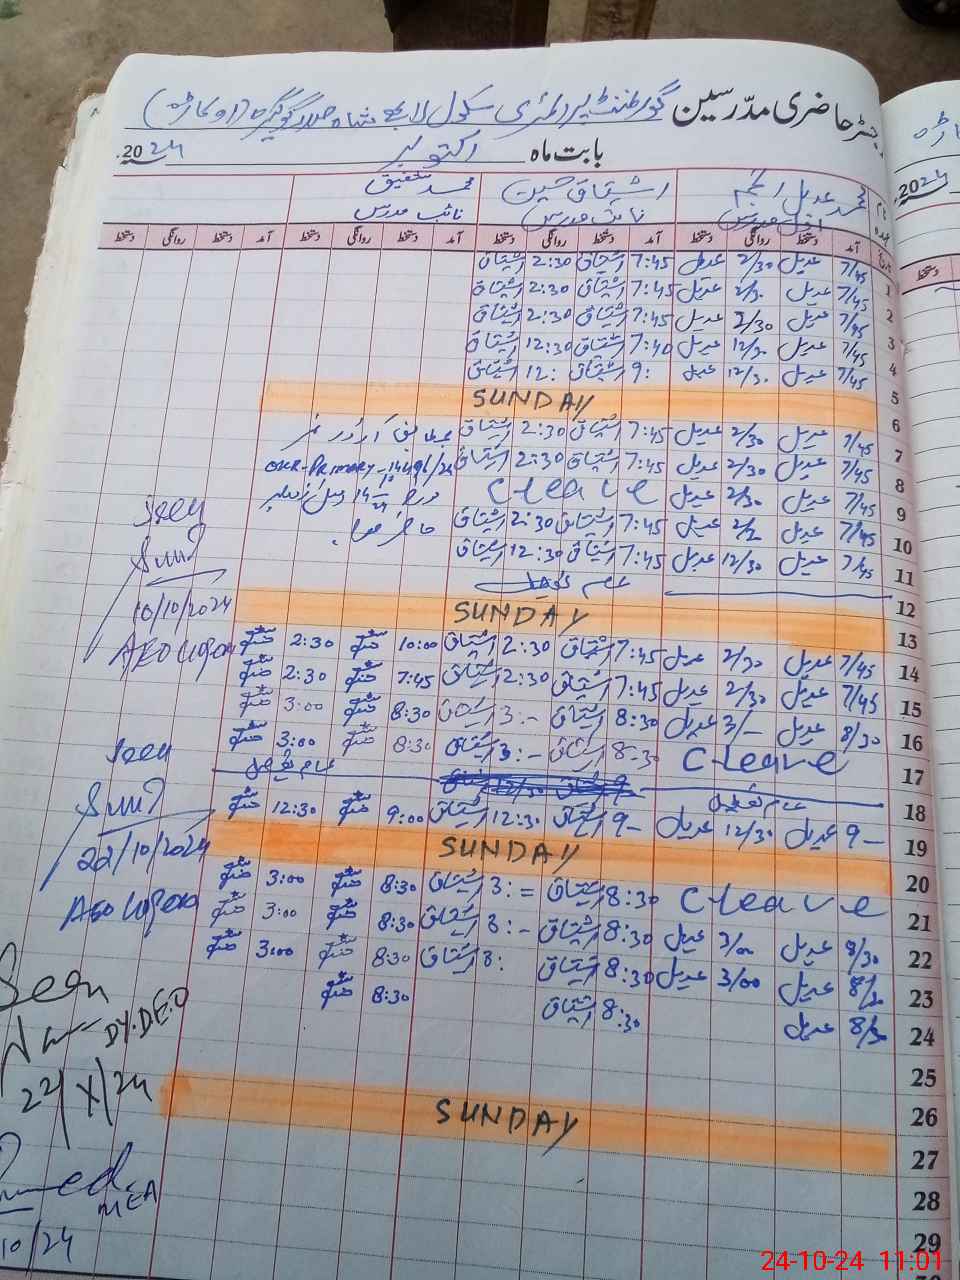 رجسٹر حاضری مدرسین گورنمنٹ پرائمری سکول شاہ (اوکاڑہ)
بابت ماہ اکتوبر 2024
محمد عدیل انجم اشتیاق حسین محمد شفیق
نائب مدرس نائب مدرس
آمد دستخط روانگی دستخط آمد دستخط روانگی دستخط آمد دستخط روانگی دستخط
1 7/45 عدیل 2/30 عدیل 7:45 اشتیاق 2:30 اشتیاق
2 7/45 عدیل 2/30 عدیل 7:45 اشتیاق 2:30 اشتیاق
3 7/45 عدیل 2/30 عدیل 7:45 اشتیاق 2:30 اشتیاق
4 7/45 عدیل 12/30 عدیل 7:40 اشتیاق 12:30 اشتیاق
5 7/45 عدیل 12/30 عدیل 9: اشتیاق 12: اشتیاق
6 SUNDAY
7 7/45 عدیل 2/30 عدیل 7:45 اشتیاق 2:30 اشتیاق بمطابق آرڈر نمبر
8 7/45 عدیل 2/30 عدیل 7:45 اشتیاق 2:30 اشتیاق
9 7/45 عدیل 2/30 عدیل C-leave
10 7/45 عدیل عدیل 7:45 اشتیاق 2:30 اشتیاق حاضر ہوا۔
11 7/45 عدیل 12/30 عدیل 7:45 اشتیاق 12:30 اشتیاق
12 عام تعطیل
13 SUNDAY
14 7/45 عدیل 2/30 عدیل 7:45 اشتیاق 2:30 اشتیاق 10:00 شفیق 2:30 شفیق
15 7/45 عدیل 2/30 عدیل 7:45 اشتیاق 2:30 اشتیاق 7:45 شفیق 2:30 شفیق
16 8/30 عدیل 3/- عدیل 8:30 اشتیاق 3:- اشتیاق 8:30 شفیق 3:00 شفیق
17 C-leave 8:30 اشتیاق 3:- اشتیاق 8:30 شفیق 3:00 شفیق
18 عام تعطیل عام تعطیل
19 9- عدیل 12/30 عدیل 9- اشتیاق 12:30 اشتیاق 9:00 شفیق 12:30 شفیق
20 SUNDAY
21 C-leave 8:30 اشتیاق 3:= اشتیاق 8:30 شفیق 3:00 شفیق
22 8/30 عدیل 3/00 عدیل 8:30 اشتیاق 3:- اشتیاق 8:30 شفیق 3:00 شفیق
23 عدیل 3/00 عدیل 8:30 اشتیاق 3: اشتیاق 8:30 شفیق 3:00 شفیق
24 عدیل 8:30 اشتیاق 8:30 شفیق
25
26
27 SUNDAY
28
29
Seen
10/10/2024
Seen
22/10/2024
Seen
DY.DEO
22/X/24
MEA
10/24
2024
24-10-24 11:01